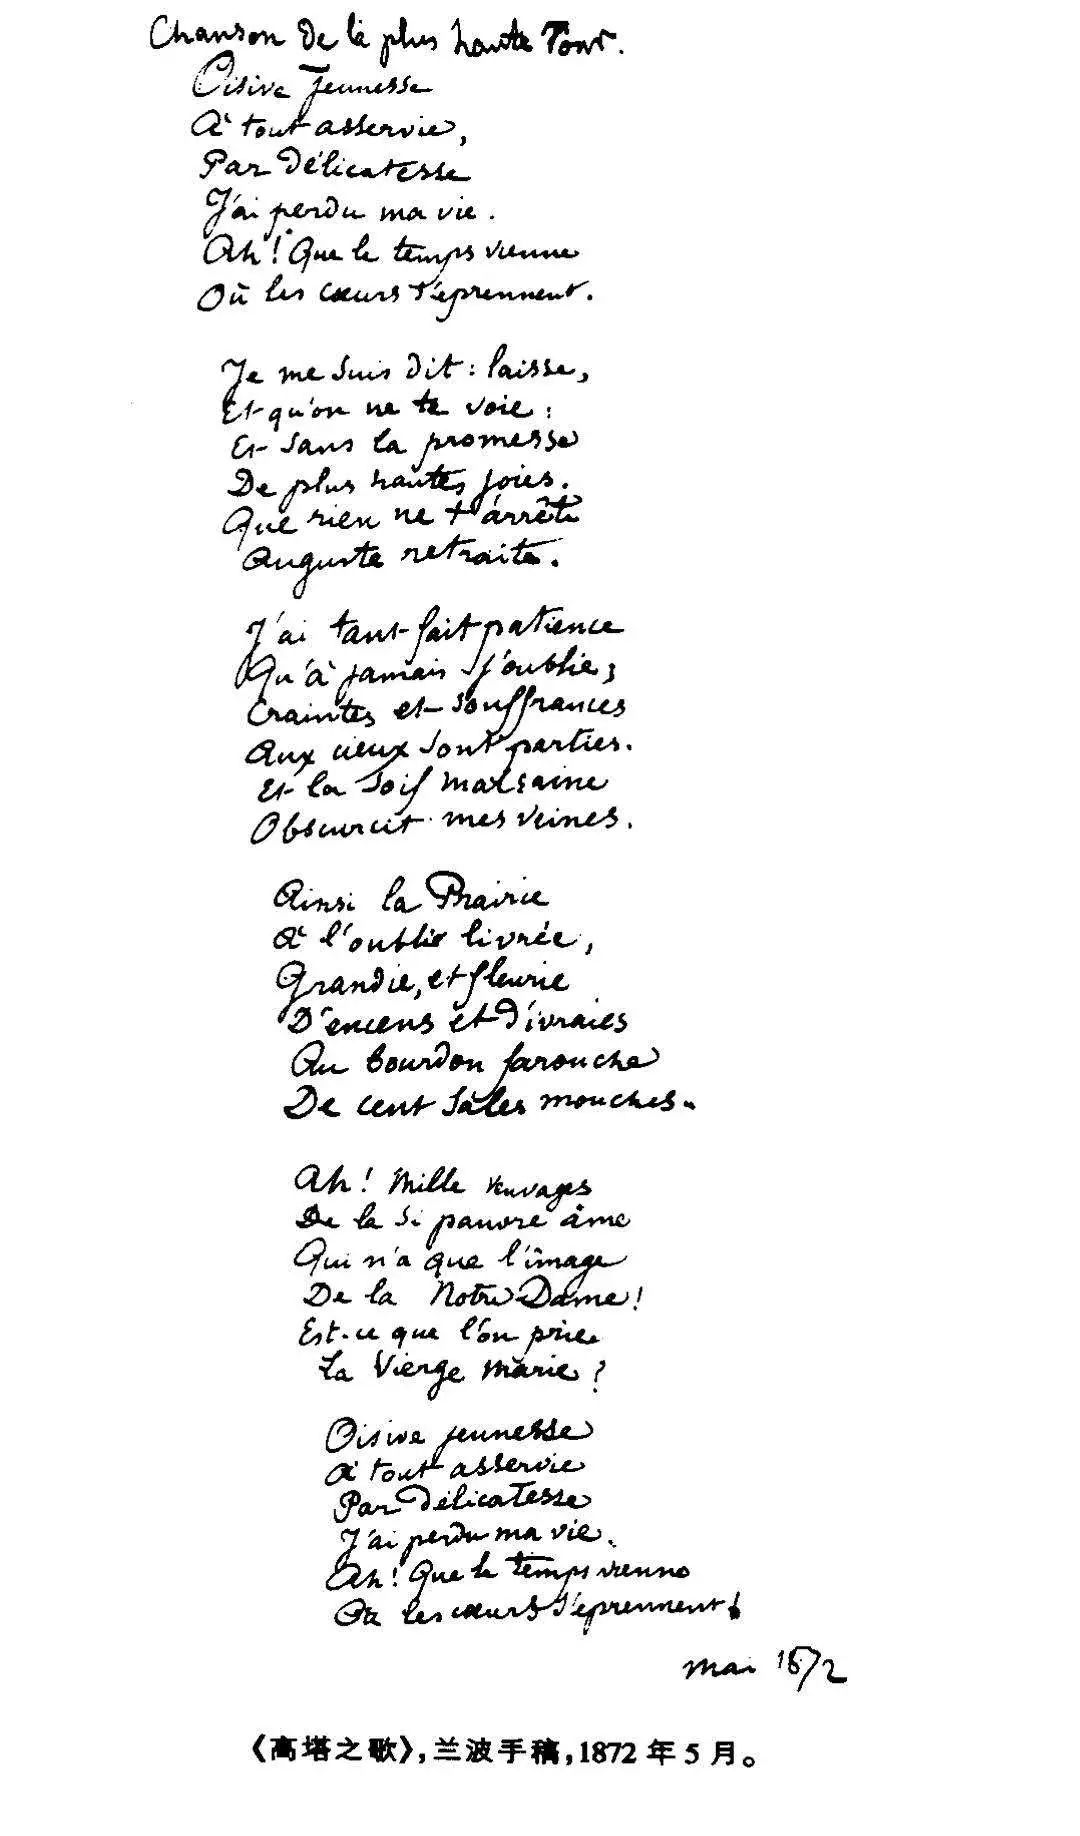 Chanson de la plus haute Tour.
Oisive jeunesse
À tout asservie,
Par délicatesse
J'ai perdu ma vie.
Ah! Que le temps vienne
Où les cœurs s'éprennent.
Je me suis dit: laisse,
Et qu'on ne te voie:
Et sans la promesse
De plus hautes joies.
Que rien ne t'arrête
Auguste retraite.
J'ai tant fait patience
Qu'à jamais j'oublie;
Craintes et souffrances
Aux cieux sont parties.
Et la soif malsaine
Obscurcit mes veines.
Ainsi la Prairie
À l'oubli livrée,
Grandie, et fleurie
D'encens et d'ivraies
Au bourdon farouche
De cent sales mouches.
Ah! Mille veuvages
De la si pauvre âme
Qui n'a que l'image
De la Notre Dame!
Est-ce que l'on prie
La Vierge Marie?
Oisive jeunesse
À tout asservie
Par délicatesse
J'ai perdu ma vie.
Ah! Que le temps vienne
Où les cœurs s'éprennent!
Mai 1872
《高塔之歌》,兰波手稿,1872年5月。